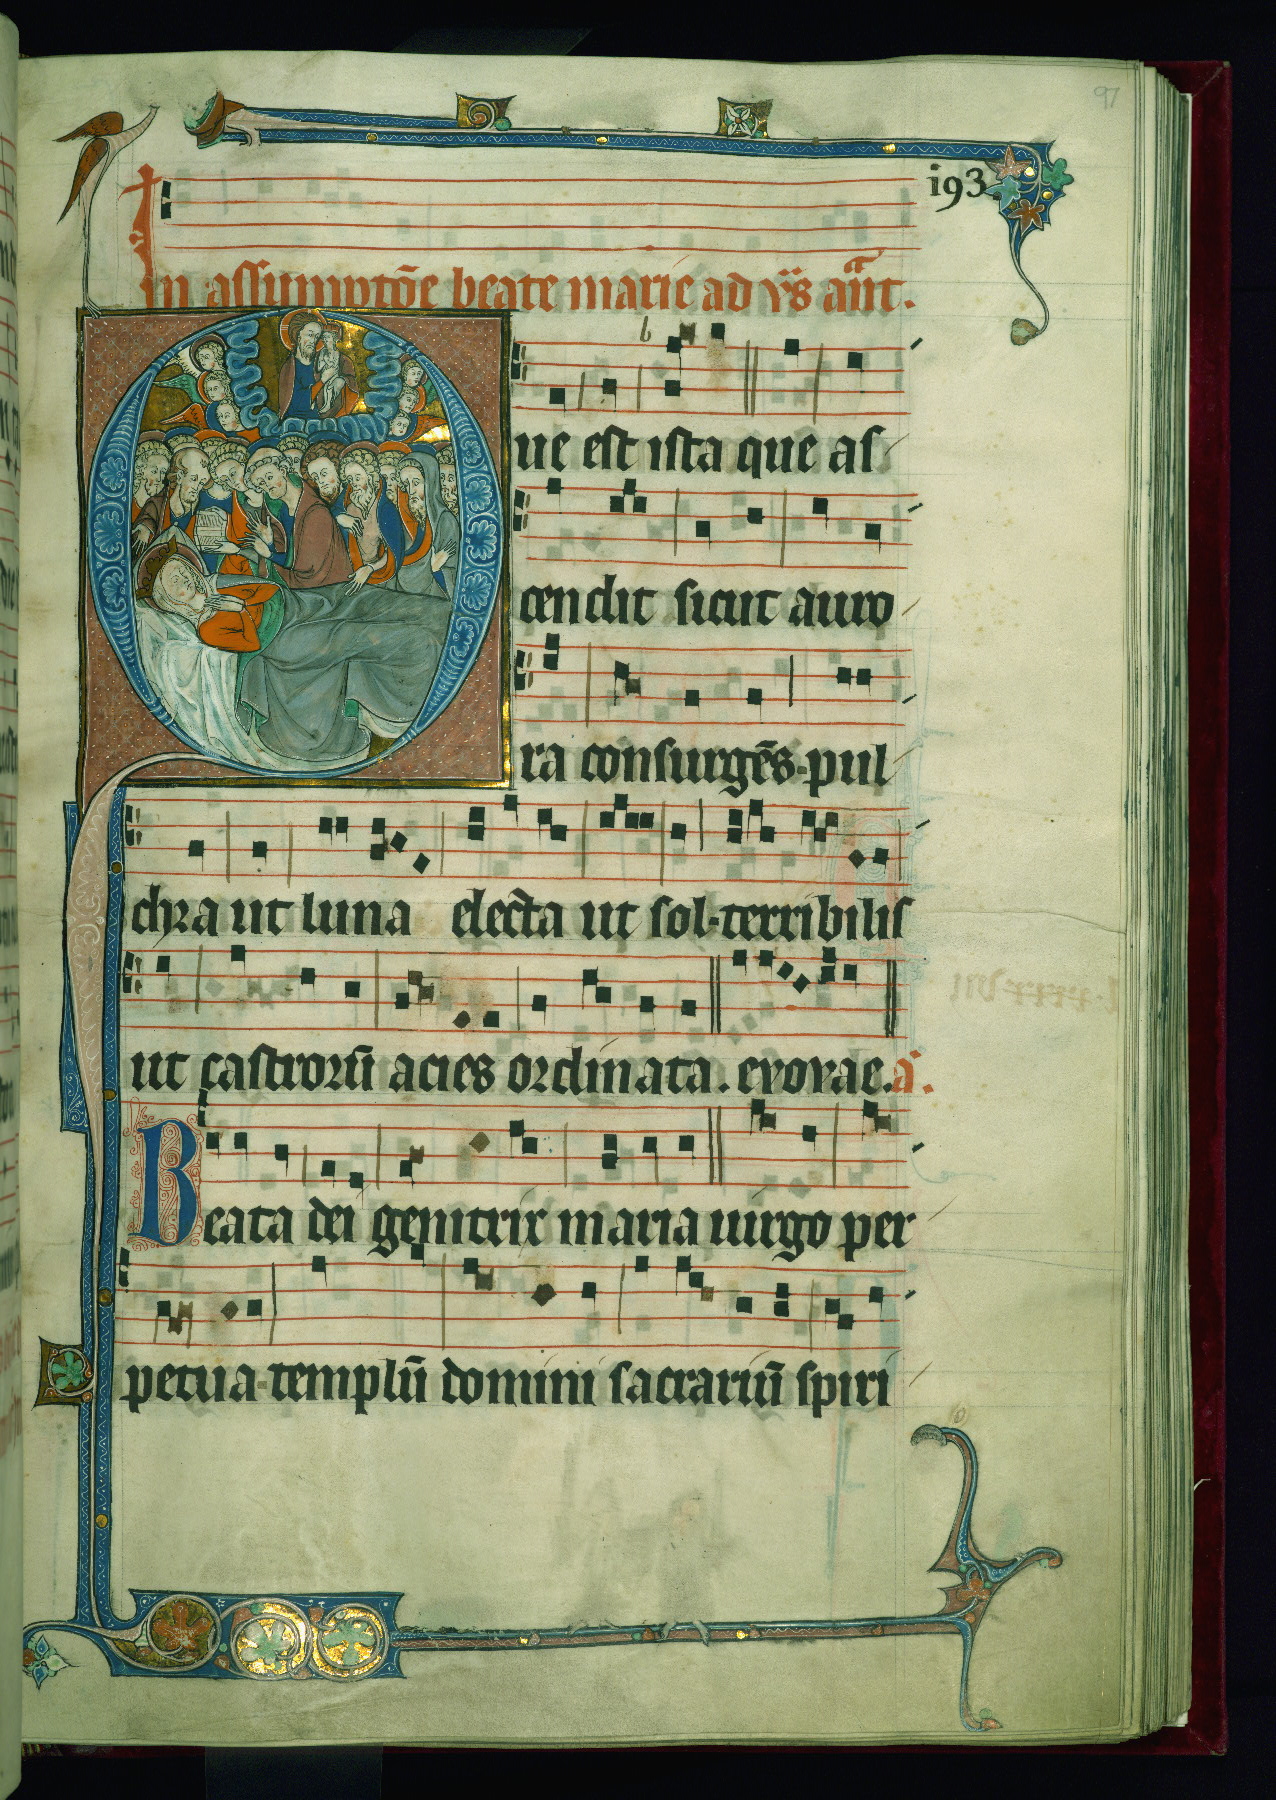 97
193
In assumptōe beate marie ad vs̄ ant.
Que est ista que as
cendit sicut auro
ra consurgēs. pul
chra ut luna electa ut sol. terribilis
ut castrorū acies ordinata. evovae. a.
Beata dei genitrix maria uirgo per
petua. templū domini sacrariū spiri